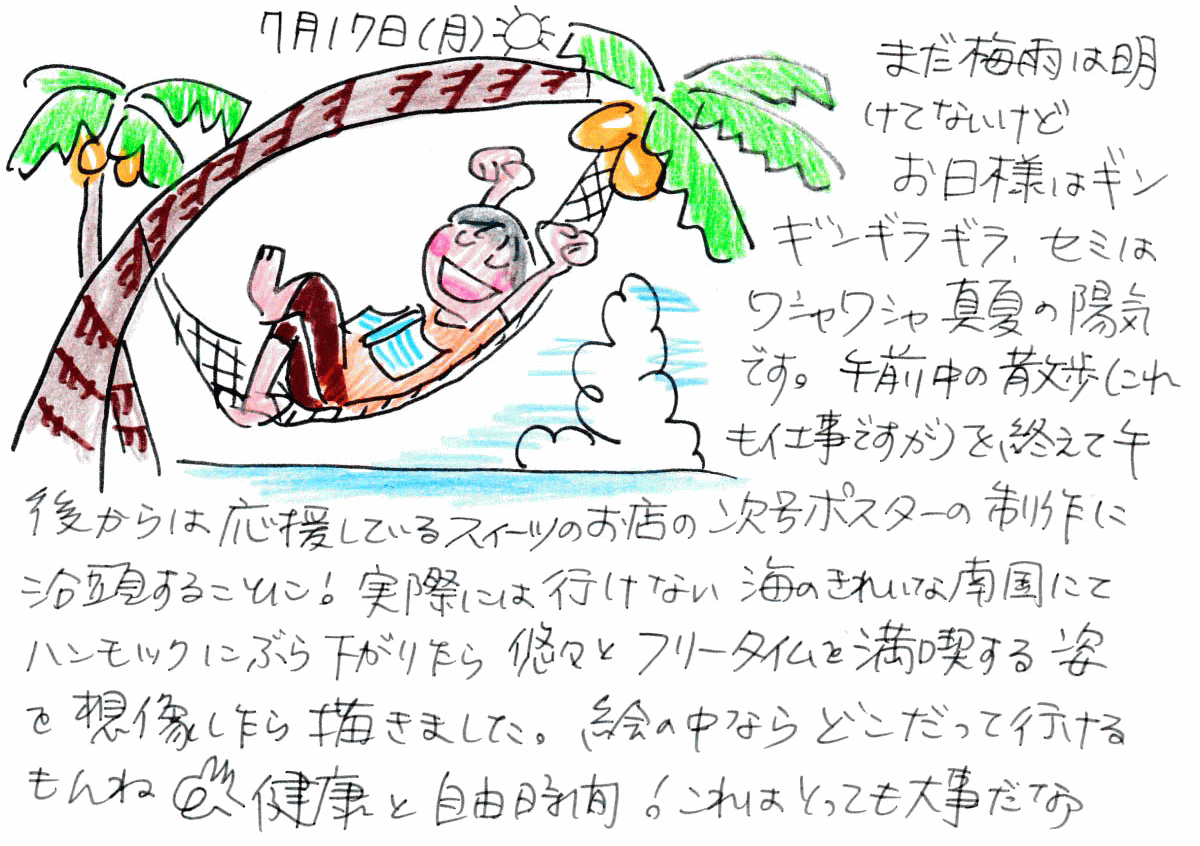 7月17日(月)
まだ梅雨は明
けてないけど
お日様はギン
ギンギラギラ、セミは
ワシャワシャ真夏の陽気
です。午前中の散歩(これ
も仕事ですが)を終えて午
後からは応援しているスイーツのお店の次号ポスターの制作に
没頭することに!実際には行けない海のきれいな南国にて
ハンモックにぶら下がりながら悠々とフリータイムを満喫する姿
を想像しながら描きました。絵の中ならどこだって行ける
もんね健康と自由時間!これはとっても大事だなぁ